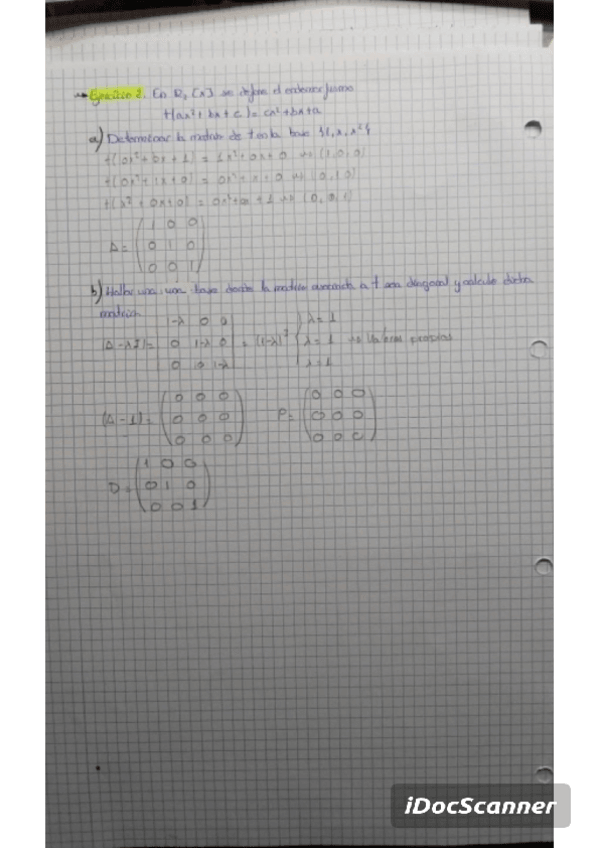 Ejercicio 2. En R₂ [x] se define el endomorfismo
t(ax² + bx + c) = cx² + bx + a
a) Determinar la matriz de t en la base {1, x, x²}
t(0x² + 0x + 1) = 1x² + 0x + 0 → (1, 0, 0)
t(0x² + 1x + 0) = 0x² + x + 0 → (0, 1, 0)
t(x² + 0x + 0) = 0x² + 0x + 1 → (0, 0, 1)
1 0 0
A = 0 1 0
0 0 1
b) Hallar una base donde la matriz asociada a t sea diagonal y calcule dicha
matriz
1-λ 0 0 λ = 1
|A - λI| = 0 1-λ 0 = (1-λ)³ λ = 1 → Valores propios
0 0 1-λ λ = 1
0 0 0 0 0 0
(A - 1) = 0 0 0 P = 0 0 0
0 0 0 0 0 0
1 0 0
D = 0 1 0
0 0 1
iDocScanner